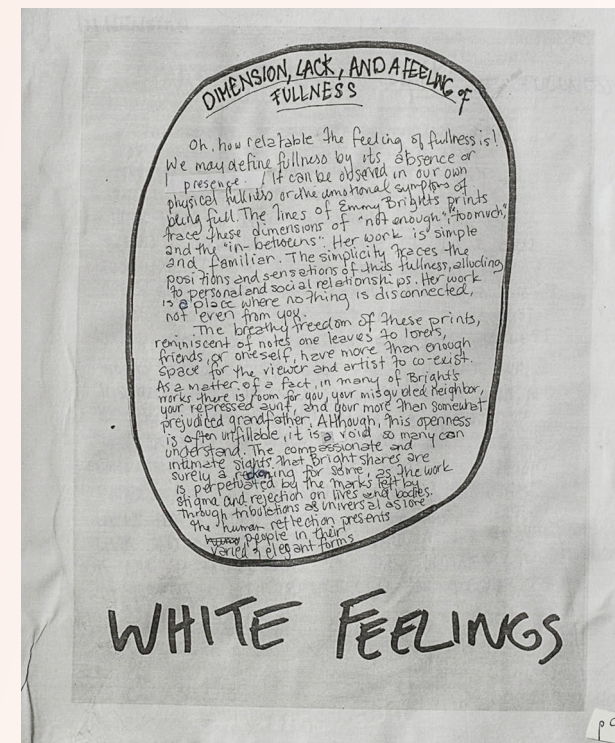 DIMENSION, LACK, AND A FEELING of
FULLNESS
Oh, how relatable the feeling of fullness is!
We may define fullness by its absence or
presence. It can be observed in our own
physical fullness or the emotional symptoms of
being full. The lines of Emmy Bright's prints
trace these dimensions of "not enough", "too much",
and the "in-betweens". Her work is simple
and familiar. The simplicity traces the
positions and sensations of this fullness, alluding
to personal and social relationships. Her work
is a place where nothing is disconnected,
not even from you.
The breathy freedom of these prints,
reminiscent of notes one leaves to lovers,
friends, or oneself, have more than enough
space for the viewer and artist to co-exist.
As a matter of a fact, in many of Bright's
works there is room for you, your misguided neighbor,
your repressed aunt, and your more than somewhat
prejudiced grandfather. Although, this openness
is often unfillable, it is a void so many can
understand. The compassionate and
intimate sights that Bright shares are
surely a for some, as the work
is perpetuated by the marks left by
stigma and rejection on lives and bodies.
Through tribulations as universal as love
the human reflection presents
people in their
varied & elegant forms
WHITE FEELINGS